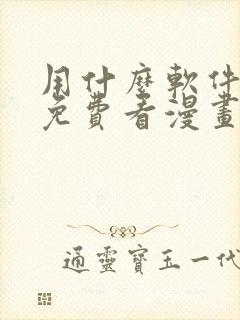 用什麼軟件
免費看漫畫
通靈寶玉一代